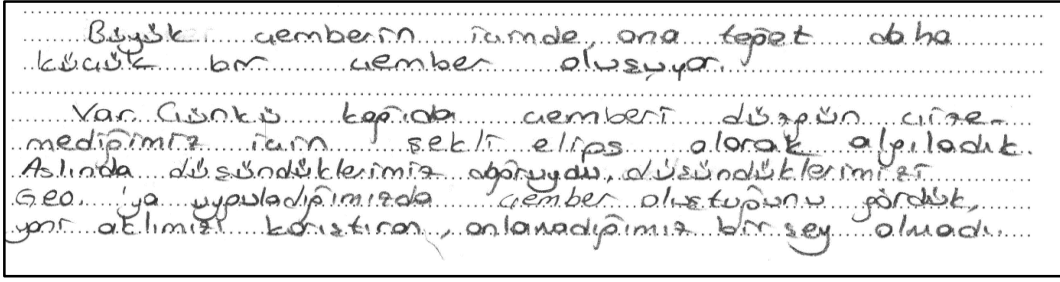 Büyük çemberin içinde, ona teğet daha
küçük bir çember oluşuyor.
Var. Çünkü kağıda çemberi düzgün çize-
mediğimiz için şekli elips olarak algıladık.
Aslında düşündüklerimiz doğruydu, düşündüklerimizi
Geo. 'ya uyguladığımızda çember oluştuğunu gördük,
yani aklımızı karıştıran, anlamadığımız bir şey olmadı.